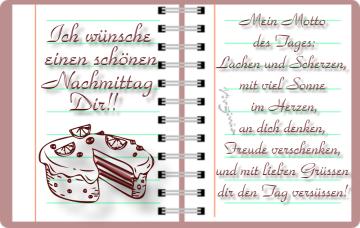 Ich wünsche
einen schönen
Nachmittag
Dir!!
Mein Motto
des Tages:
Lachen und Scherzen,
mit viel Sonne
im Herzen,
an dich denken,
Freude verschenken,
und mit lieben Grüssen
dir den Tag versüssen!